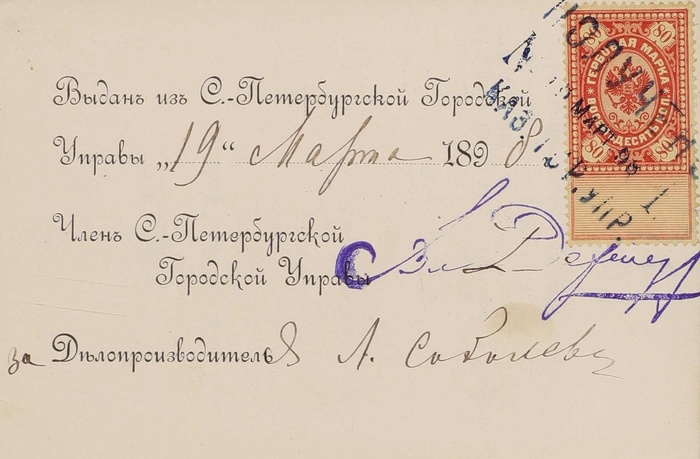 Выданъ изъ С.-Петербургской Городской
Управы „19“ Марта 1898
Членъ С.-Петербургской
Городской Управы
за Дѣлопроизводителя А. Соболевъ
80 80
ГЕРБОВАЯ МАРКА
ВОСЕМЬДЕСЯТЪ КОП.
80 80
МАРТ 98